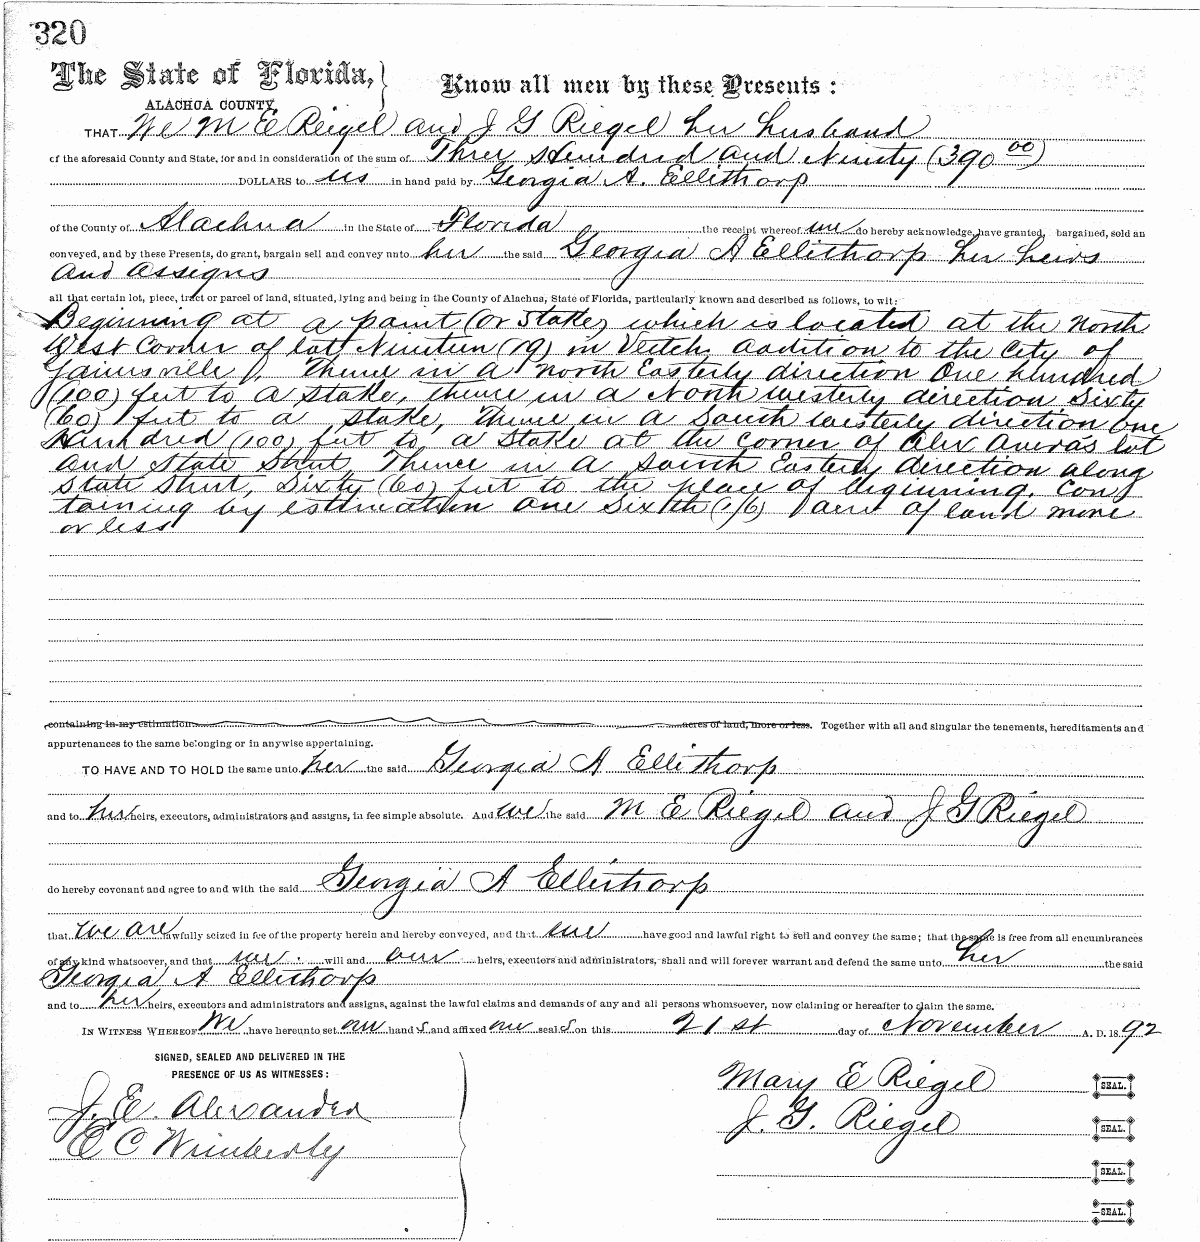 320
The State of Florida,
Know all men by these Presents:
ALACHUA COUNTY,
THAT We M E Reigel and J G Riegel her husband
of the aforesaid County and State, for and in consideration of the sum of Three Hundred and Ninety (390 00)
DOLLARS to us in hand paid by Georgia A. Ellithorp
of the County of Alachua in the State of Florida the receipt whereof we do hereby acknowledge, have granted, bargained, sold an
conveyed, and by these Presents, do grant, bargain sell and convey unto her the said Georgia A Ellithorp her heirs
and assigns
all that certain lot, piece, tract or parcel of land, situated, lying and being in the County of Alachua, State of Florida, particularly known and described as follows, to wit:
Beginning at a point (or Stake) which is located at the North
West Corner of lot Nineteen (19) in Veitch addition to the City of
Gainesville, Thence in a north Easterly direction One hundred
(100) feet to a stake, thence in a North westerly direction Sixty
(60) feet to a stake, Thence in a South westerly direction one
Hundred (100) feet to a Stake at the corner of Alex Avera's lot
and State Street, Thence in a South Easterly direction along
State Street, Sixty (60) feet to the place of beginning, Con
taining by estimation one Sixth (1/6) acre of land more
or less
containing in my estimation acres of land, more or less. Together with all and singular the tenements, hereditaments and
appurtenances to the same belonging or in anywise appertaining.
TO HAVE AND TO HOLD the same unto her the said Georgia A Ellithorp
and to her heirs, executors, administrators and assigns, in fee simple absolute. And we the said M E Riegel and J G Riegel
do hereby covenant and agree to and with the said Georgia A Ellithorp
that we are lawfully seized in fee of the property herein and hereby conveyed, and that we have good and lawful right to sell and convey the same; that the same is free from all encumbrances
of any kind whatsoever, and that we will and our heirs, executors and administrators, shall and will forever warrant and defend the same unto her the said
Georgia A Ellithorp
and to her heirs, executors and administrators and assigns, against the lawful claims and demands of any and all persons whomsoever, now claiming or hereafter to claim the same.
IN WITNESS WHEREOF We have hereunto set our hands and affixed our seals on this 21st day of November A. D. 1892
SIGNED, SEALED AND DELIVERED IN THE
PRESENCE OF US AS WITNESSES:
J. E. Alexander
E C Wimberly
Mary E Riegel SEAL.
J. G. Riegel SEAL.
SEAL.
SEAL.